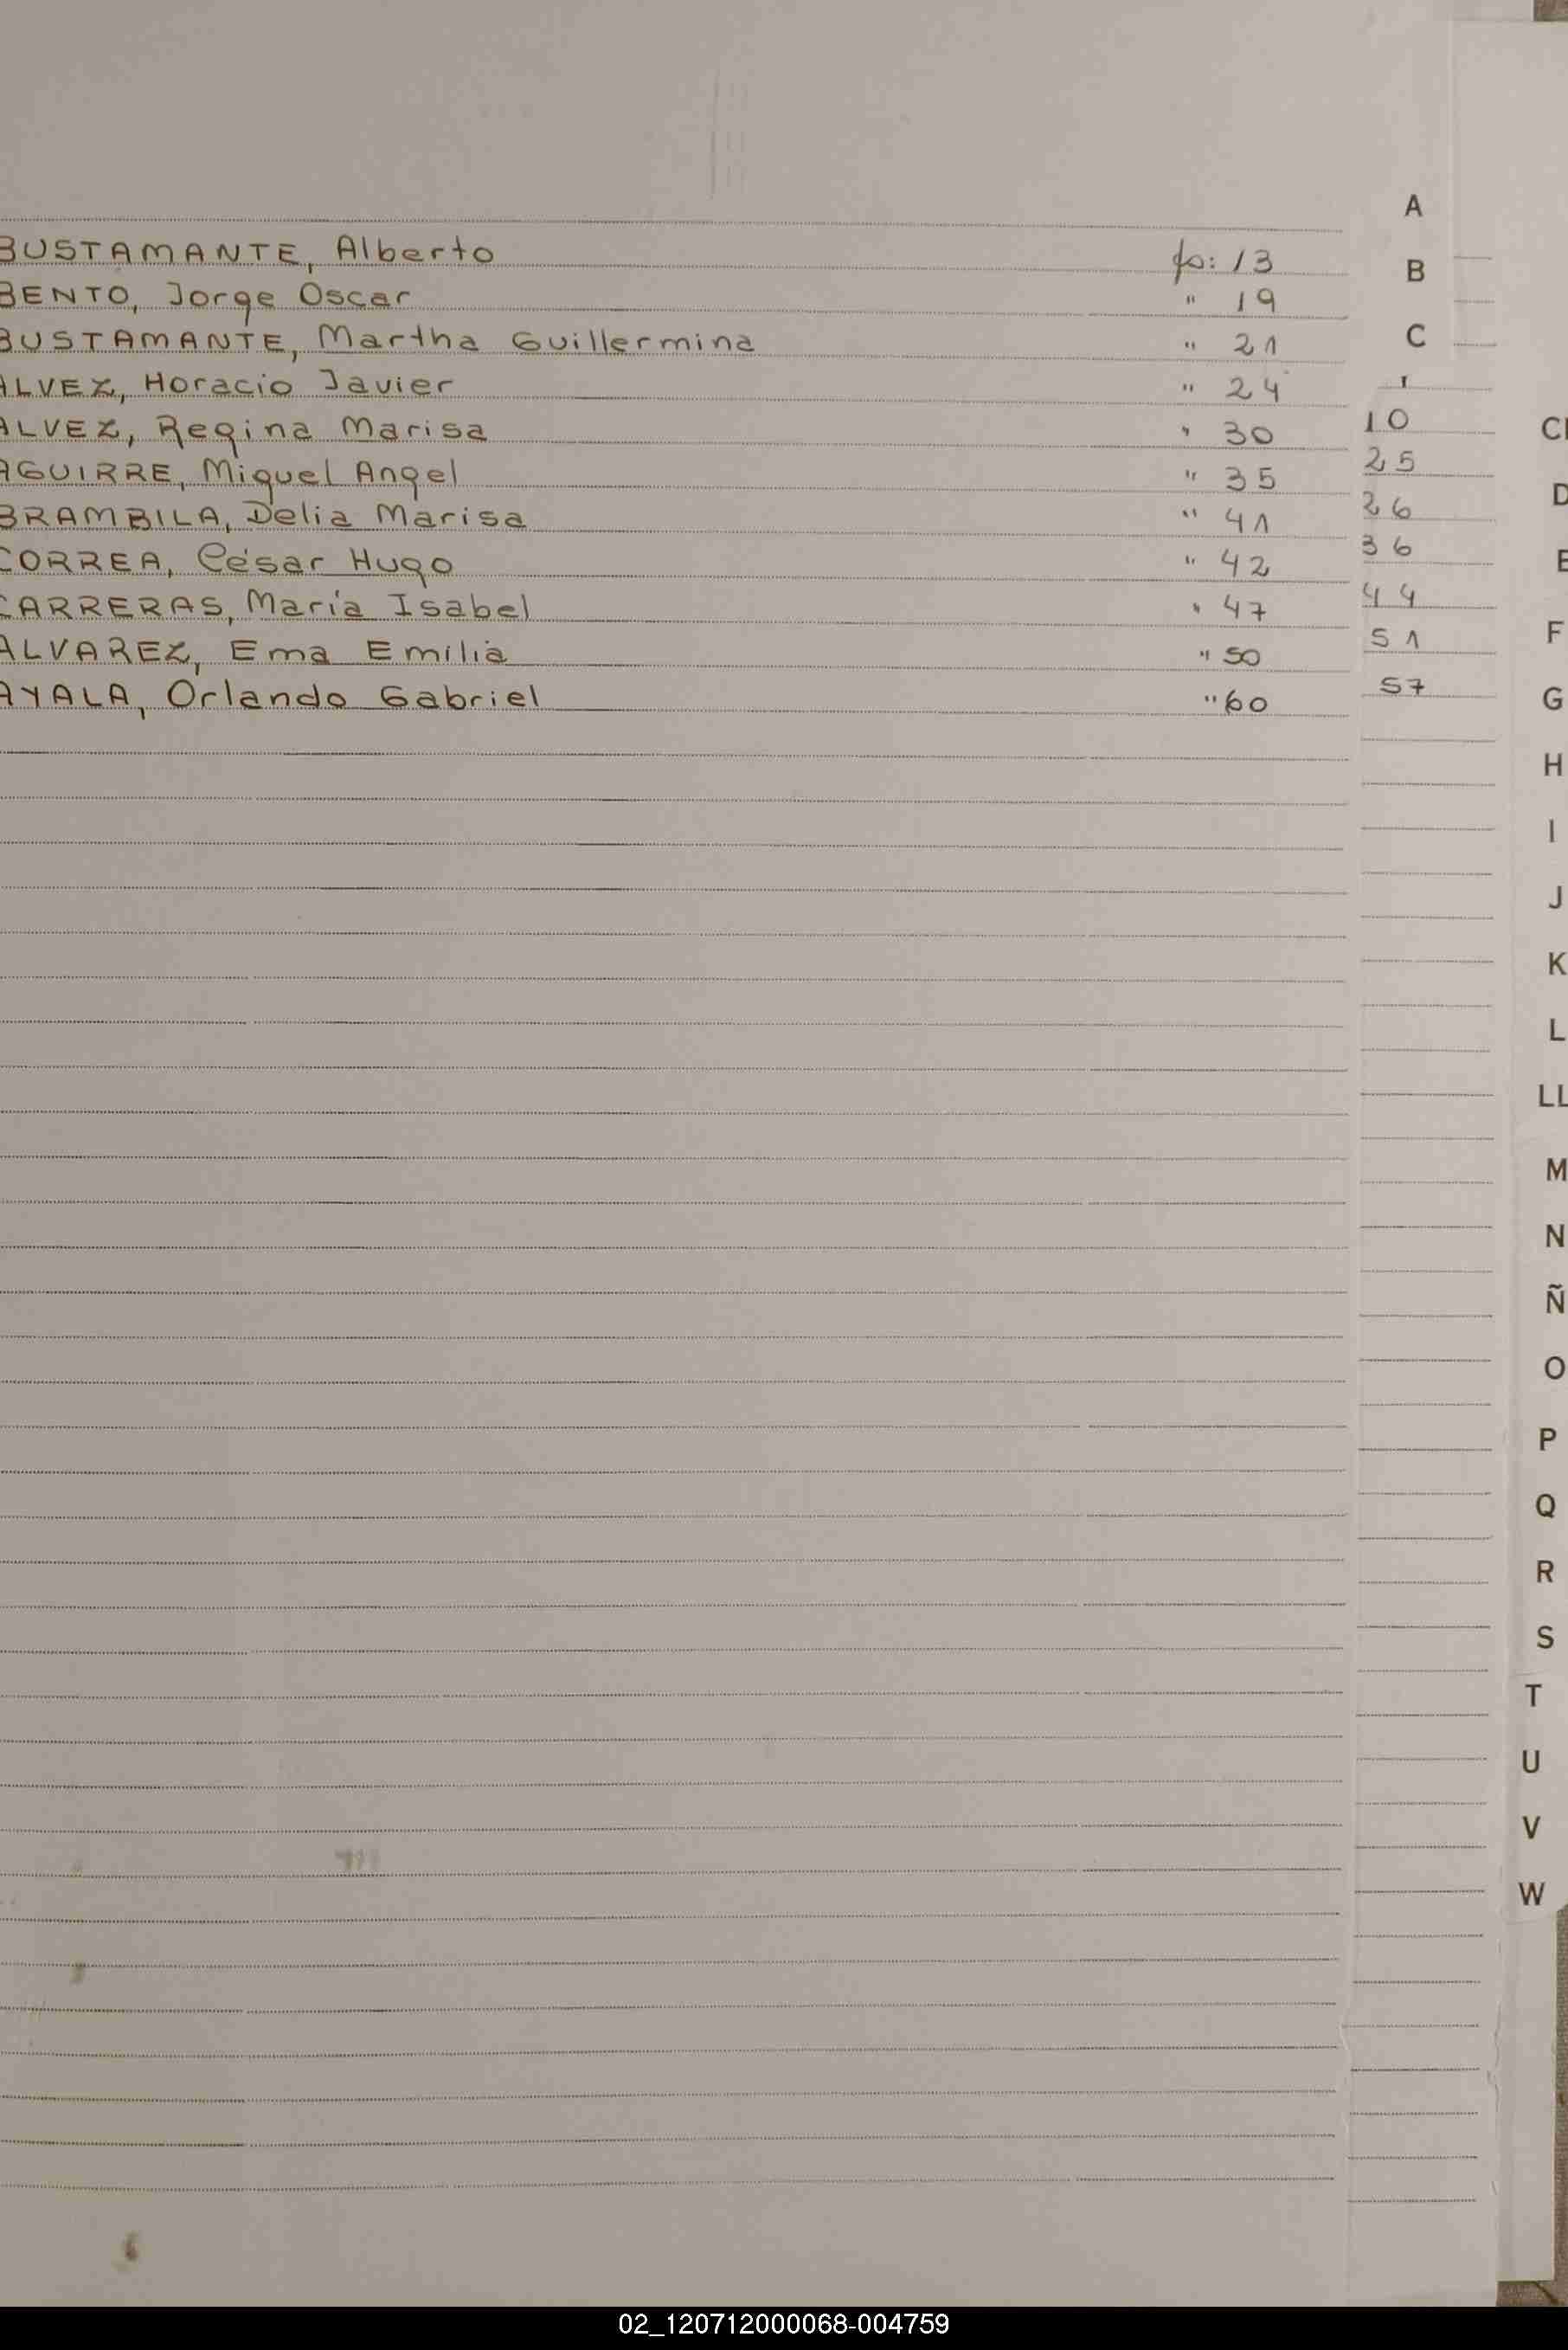 BUSTAMANTE, Alberto fo: 13
BENTO, Jorge Oscar " 19
BUSTAMANTE, Martha Guillermina " 21
ALVEZ, Horacio Javier " 24
ALVEZ, Regina Marisa " 30
AGUIRRE, Miguel Angel " 35
BRAMBILA, Delia Marisa " 41
CORREA, César Hugo " 42
CARRERAS, María Isabel " 47
ALVAREZ, Ema Emilia " 50
AYALA, Orlando Gabriel " 60
10
25
26
36
44
51
57
A
B
C
D
E
F
G
H
I
J
K
L
LL
M
N
Ñ
O
P
Q
R
S
T
U
V
W
02_120712000068-004759